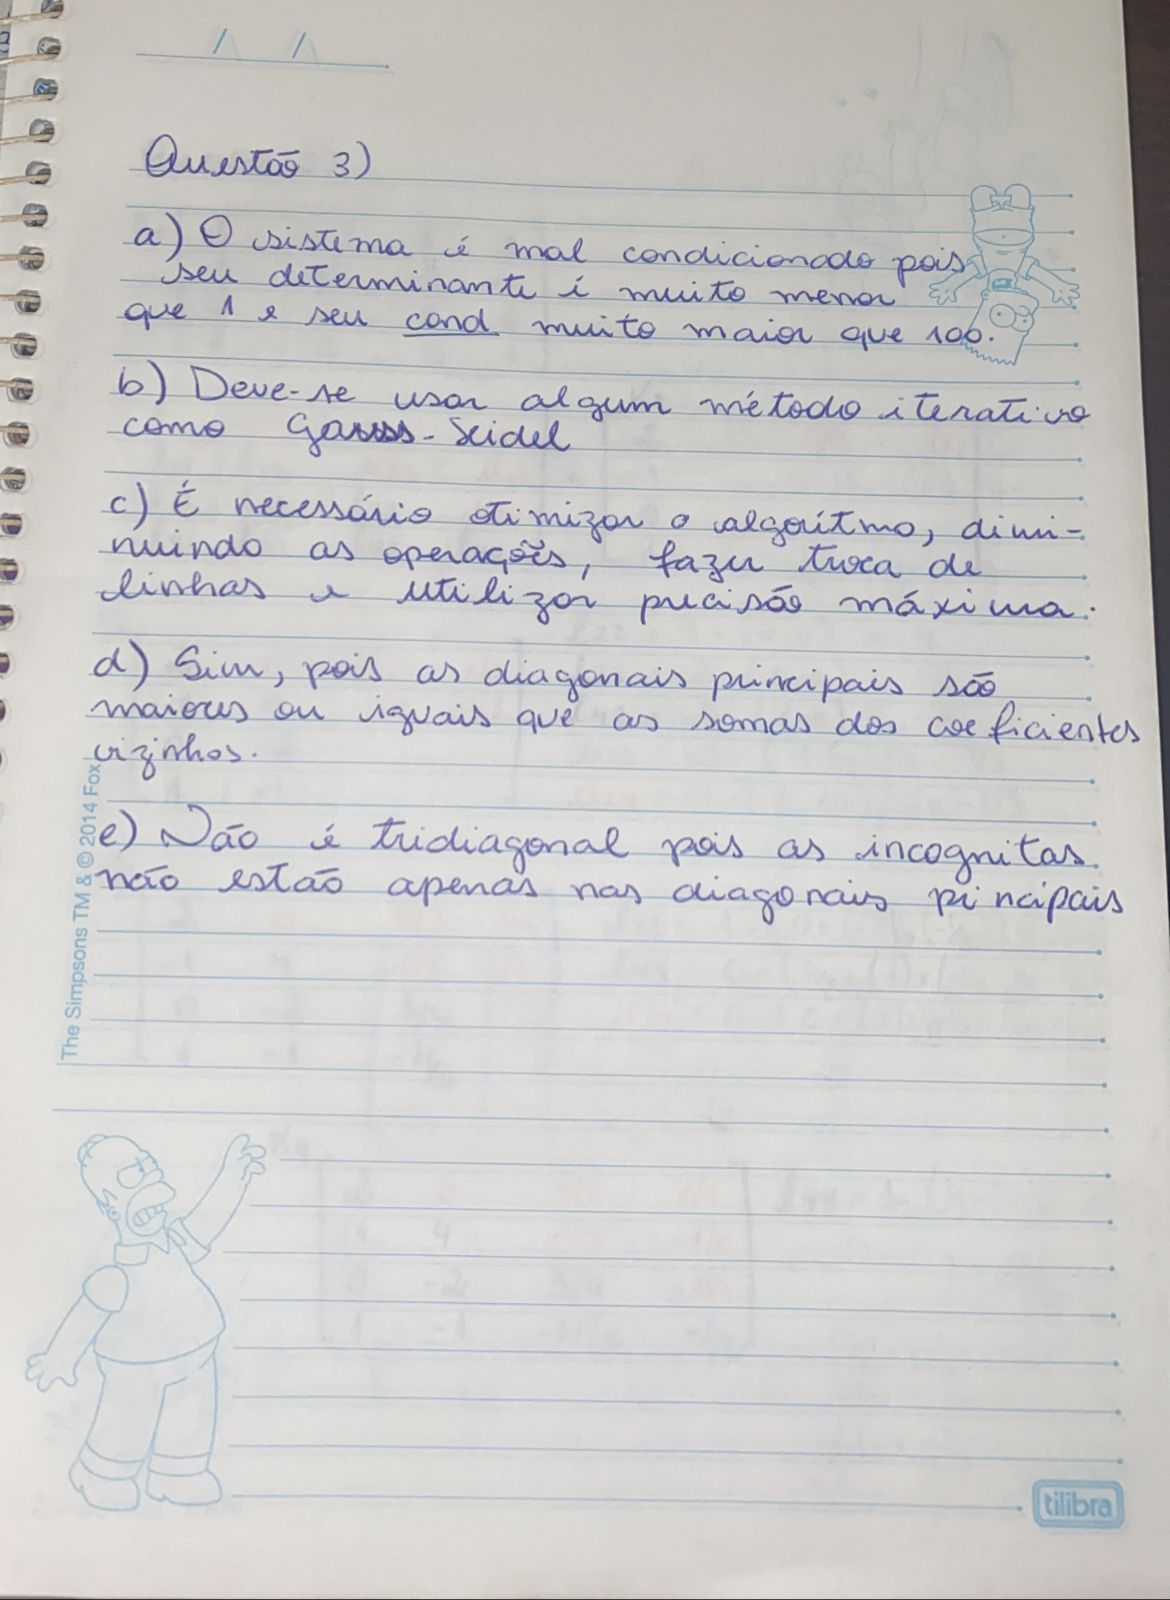 Questão 3)
a) O sistema é mal condicionado pois
seu determinante é muito menor
que 1 e seu cond. muito maior que 100.
b) Deve-se usar algum método iterativo
como Gauss-Seidel
c) É necessário otimizar o algorítmo, dimi-
nuindo as operações, fazer troca de
linhas e utilizar precisão máxima.
d) Sim, pois as diagonais principais são
maiores ou iguais que as somas dos coeficientes
vizinhos.
e) Não é tridiagonal pois as incognitas
não estão apenas nas diagonais principais
The Simpsons TM & © 2014 Fox
tilibra